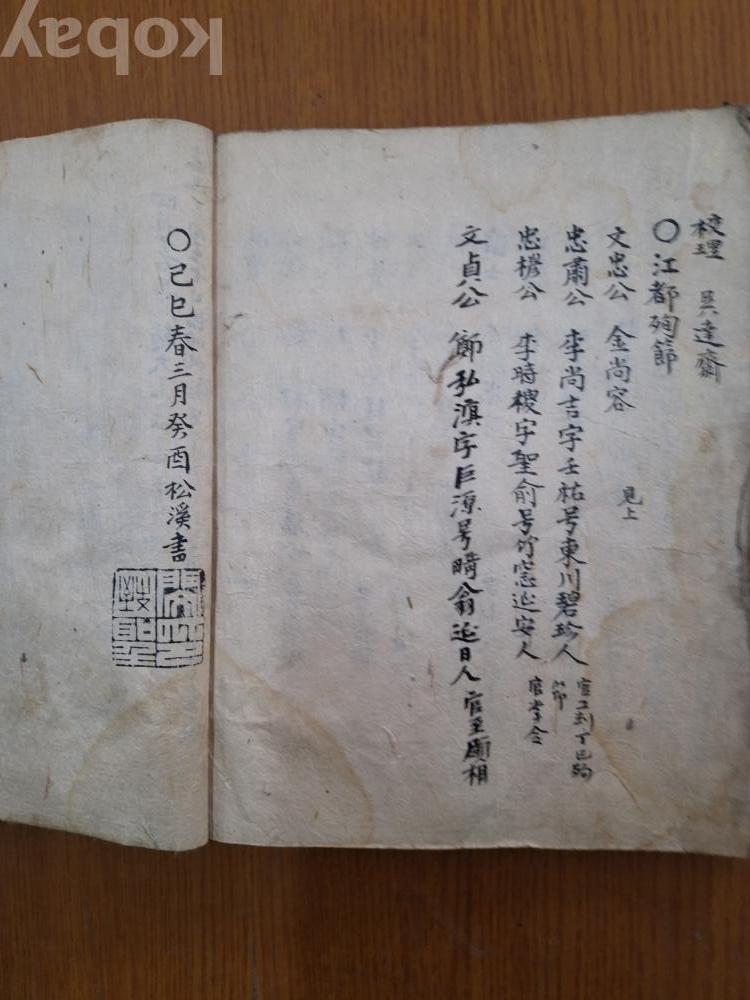 校理 吳達齋
〇江都殉節
文忠公 金尚容 見上
忠肅公 李尚吉字壬祐号東川碧珍人 官工判丁巳殉節
忠穆公 李時稷字聖俞号竹窓延安人 官掌令
文貞公 鄭弘溟字巨源号畸翁延日人 官至
〇己巳春三月癸酉松溪書
kobay